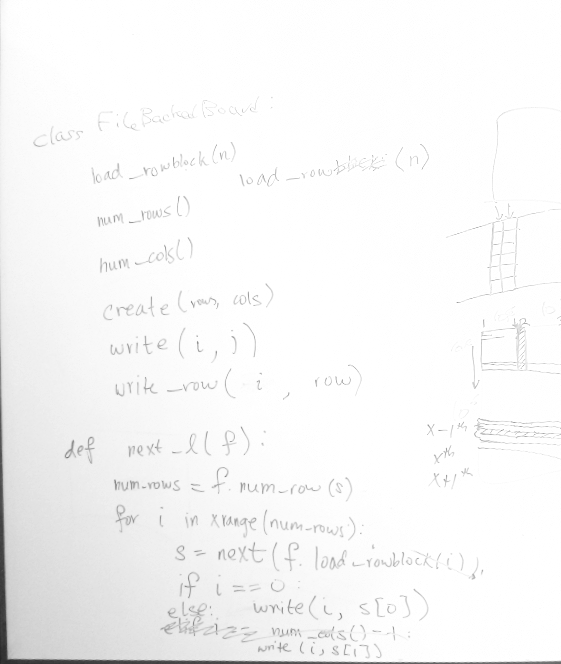 class FileBackedBoard:
load_rowblock(n)
load_row (n)
num_rows()
num_cols()
create(rows, cols)
write(i, j)
write_row( i , row)
def next_l(f):
num_rows = f.num_row(s)
for i in xrange(num-rows):
s = next(f.load_rowblock(i)),
if i == 0:
else: write(i, s[0])
num_cols()-1:
write(i, s[1])
x-1th
xth
x+1th